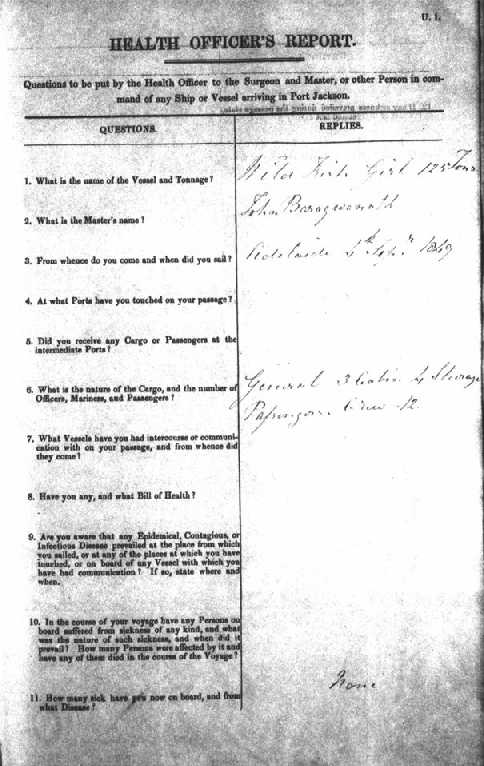 U. 1.
HEALTH OFFICER'S REPORT.
Questions to be put by the Health Officer to the Surgeon and Master, or other Person in com-
mand of any Ship or Vessel arriving in Port Jackson.
QUESTIONS.
REPLIES.
1. What is the name of the Vessel and Tonnage?
Wild Irish Girl 125 Tons
2. What is the Master's name?
John Baragwanath
3. From whence do you come and when did you sail?
Adelaide 4th Sepr 1849
4. At what Ports have you touched on your passage?
5. Did you receive any Cargo or Passengers at the
intermediate Ports?
6. What is the nature of the Cargo, and the number of
Officers, Mariners, and Passengers?
General 3 Cabin 4 Steerage
Passengers Crew 12
7. What Vessels have you had intercourse or communi-
cation with on your passage, and from whence did
they come?
8. Have you any, and what Bill of Health?
9. Are you aware that any Epidemical, Contagious, or
Infectious Disease prevailed at the place from which
you sailed, or at any of the places at which you have
touched, or on board of any Vessel with which you
have had communication? If so, state where and
when.
10. In the course of your voyage have any Persons on
board suffered from sickness of any kind, and what
was the nature of such sickness, and when did it
prevail? How many Persons were affected by it and
have any of them died in the course of the Voyage?
11. How many sick have you now on board, and from
what Disease?
None